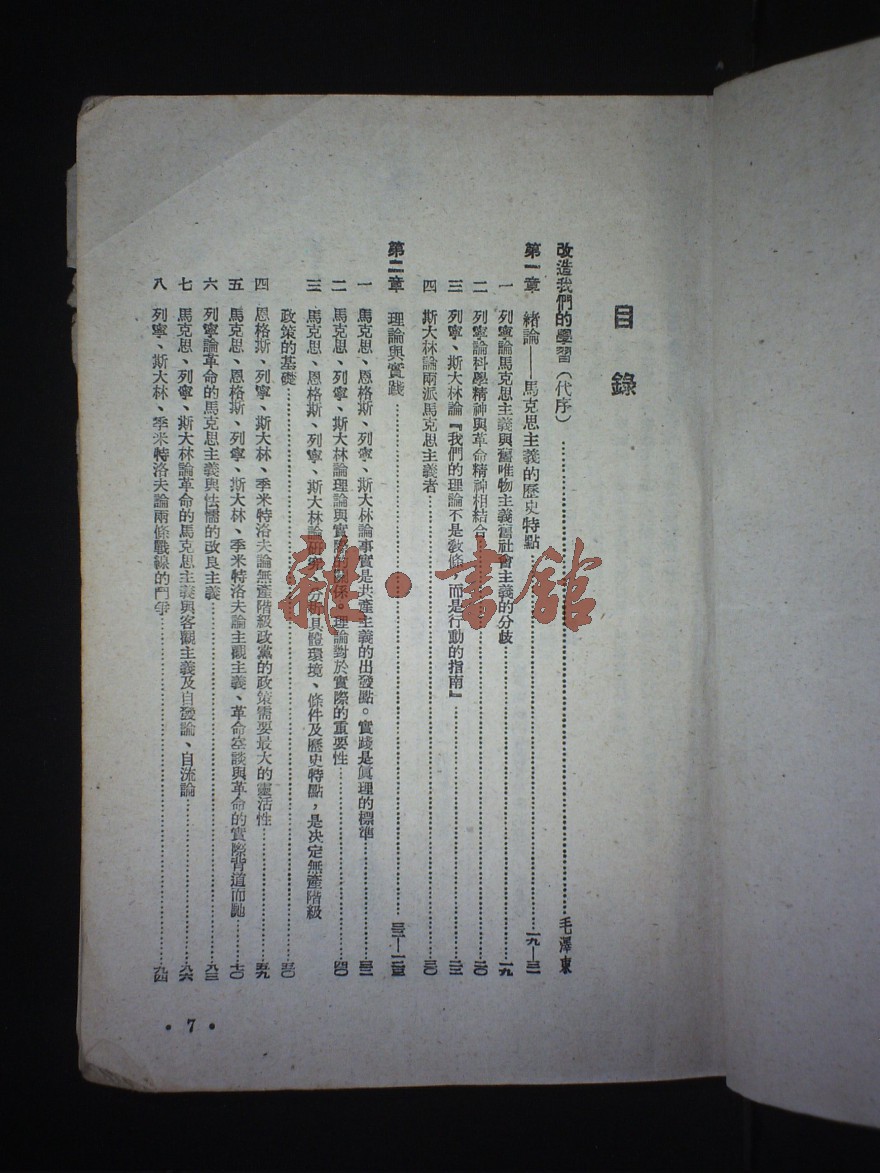 目錄
改造我們的學習（代序）……毛澤東
第一章　緒論——馬克思主義的歷史特點……一九—三一
一　列寧論馬克思主義與舊唯物主義舊社會主義的分歧……一九
二　列寧論科學精神與革命精神相結合……二〇
三　列寧、斯大林論『我們的理論不是教條，而是行動的指南』……二二
四　斯大林論兩派馬克思主義者……三〇
第二章　理論與實踐
一　馬克思、恩格斯、列寧、斯大林論事實是共產主義的出發點。實踐是眞理的標準……三二
二　馬克思、列寧、斯大林論理論與實際的關係。理論對於實際的重要性……四〇
三　馬克思、恩格斯、列寧、斯大林論研究、分析具體環境、條件及歷史特點，是決定無產階級
政策的基礎……五〇
四　恩格斯、列寧、斯大林、季米特洛夫論無產階級政黨的政策需要最大的靈活性……五九
五　馬克思、恩格斯、列寧、斯大林、季米特洛夫論主觀主義、革命空談與革命的實際背道而馳……七〇
六　列寧論革命的馬克思主義與怯懦的改良主義……九三
七　馬克思、列寧、斯大林論革命的馬克思主義與客觀主義及自發論、自流論……九六
八　列寧、斯大林、季米特洛夫論兩條戰線的鬥爭……九四
• 7 •
雜·書館